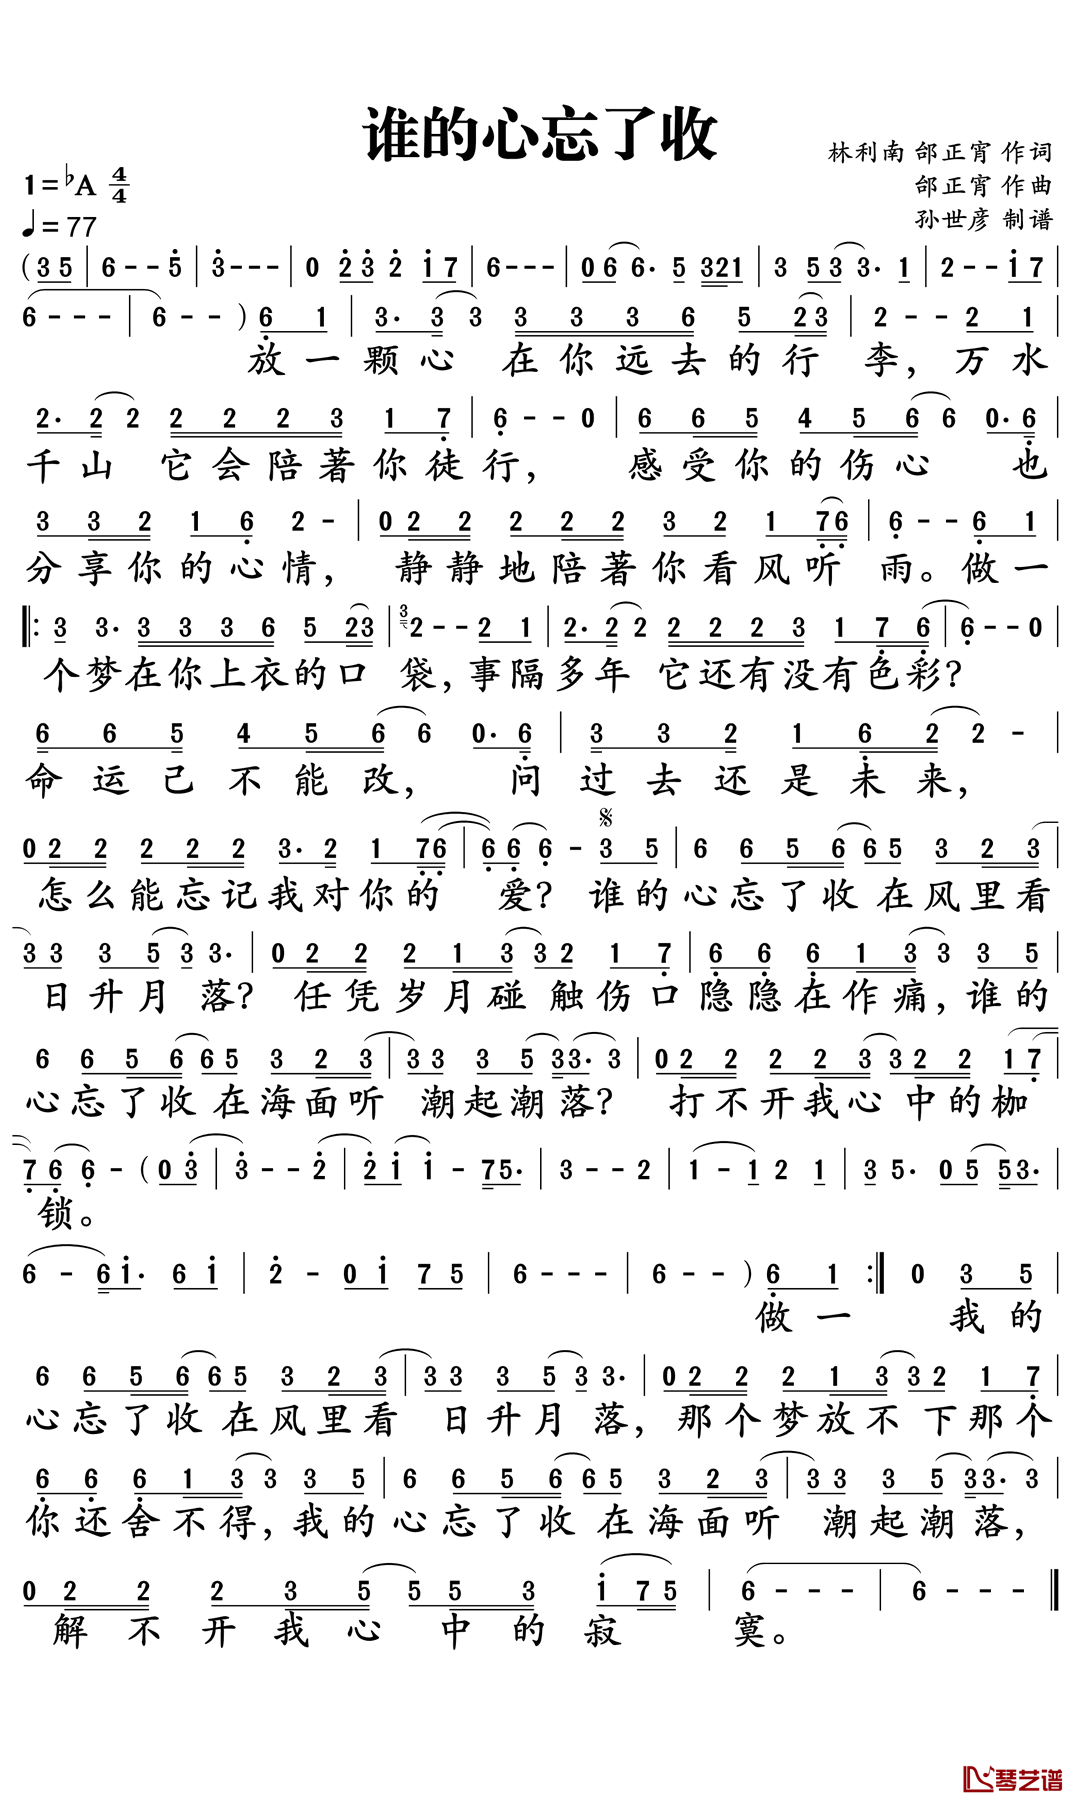 谁的心忘了收
林利南 邰正宵 作词
1=♭A 4/4
邰正宵 作曲
♩= 77
孙世彦 制谱
(3 5 | 6 - - 5 | 3 - - - | 0 2 3 2 1 7 | 6 - - - | 0 6 6. 5 3 2 1 | 3 5 3 3. 1 | 2 - - 1 7 |
6 - - - | 6 - - ) 6 1 | 3. 3 3 3 3 3 6 5 2 3 | 2 - - 2 1 |
放一颗心 在你远去的行 李，万水
2. 2 2 2 2 2 3 1 7 | 6 - - 0 | 6 6 5 4 5 6 6 0. 6 |
千山 它会陪著你徒行， 感受你的伤心 也
3 3 2 1 6 2 - | 0 2 2 2 2 2 3 2 1 7 6 | 6 - - 6 1 |
分享你的心情， 静静地陪著你看风听 雨。做一
|: 3 3. 3 3 3 6 5 2 3 | 3 2 - - 2 1 | 2. 2 2 2 2 2 3 1 7 6 | 6 - - 0
个梦在你上衣的口 袋，事隔多年 它还有没有色彩？
6 6 5 4 5 6 6 0. 6 | 3 3 2 1 6 2 2 - |
命运己不能改， 问过去还是未来，
0 2 2 2 2 2 3. 2 1 7 6 | 6 6 6 - 3 5 | 6 6 5 6 6 5 3 2 3 |
怎么能忘记我对你的 爱？ 谁的心忘了收在风里看
3 3 3 5 3 3. | 0 2 2 2 1 3 3 2 1 7 | 6 6 6 1 3 3 3 5 |
日升月 落？ 任凭岁月碰触伤口隐隐在作痛，谁的
6 6 5 6 6 5 3 2 3 | 3 3 3 5 3 3. 3 | 0 2 2 2 2 3 3 2 2 1 7 |
心忘了收在海面听 潮起潮落？ 打不开我心中的枷
7 6 6 - ( 0 3 | 3 - - 2 | 2 1 1 - 7 5. | 3 - - 2 | 1 - 1 2 1 | 3 5. 0 5 5 3. |
锁。
6 - 6 1. 6 1 | 2 - 0 1 7 5 | 6 - - - | 6 - - ) 6 1 :| 0 3 5 |
做一 我的
6 6 5 6 6 5 3 2 3 | 3 3 3 5 3 3. | 0 2 2 2 1 3 3 2 1 7 |
心忘了收在风里看 日升月落，那个梦放不下那个
6 6 6 1 3 3 3 5 | 6 6 5 6 6 5 3 2 3 | 3 3 3 5 3 3. 3 |
你还舍不得，我的心忘了收在海面听 潮起潮落，
0 2 2 2 3 5 5 5 3 1 7 5 | 6 - - - | 6 - - - ‖
解不开我心中的寂 寞。
琴艺谱